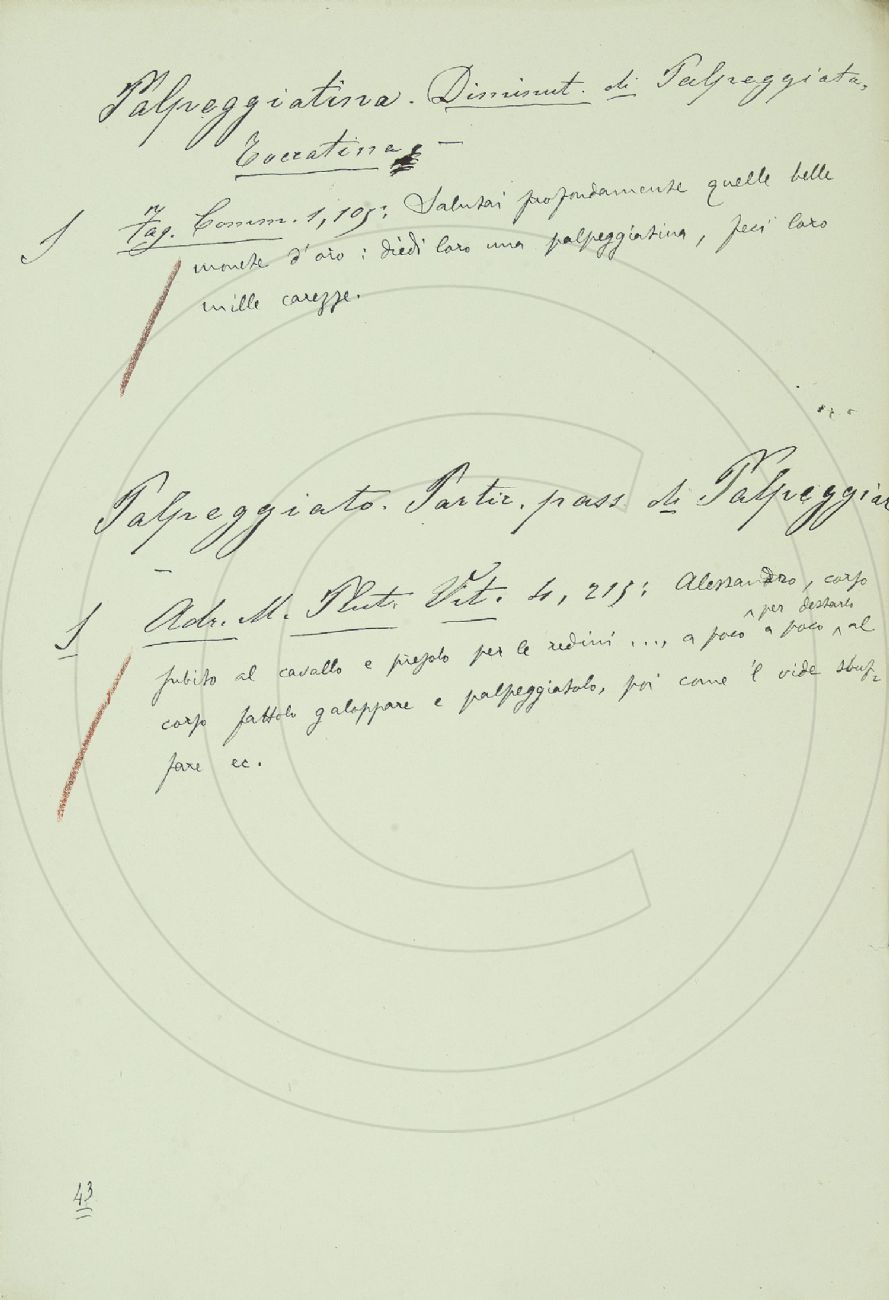 Palpeggiatina. Diminut. di Palpeggiata,
Toccatina. –
S Fag. Comm. 1, 105: Salutai profondamente quelle belle
monete d'oro: diedi loro una palpeggiatina, feci loro
mille carezze.
Palpeggiato. Partic. pass. di Palpeggiar
–
S Adr. M. Plut. Vit. 4, 215: Alessandro, corso
subito al cavallo e presolo per le redini ...., a poco a poco per destarlo al
corso fattolo galoppare e palpeggiatolo, poi come 'l vide sbuf=
fare ec.
43